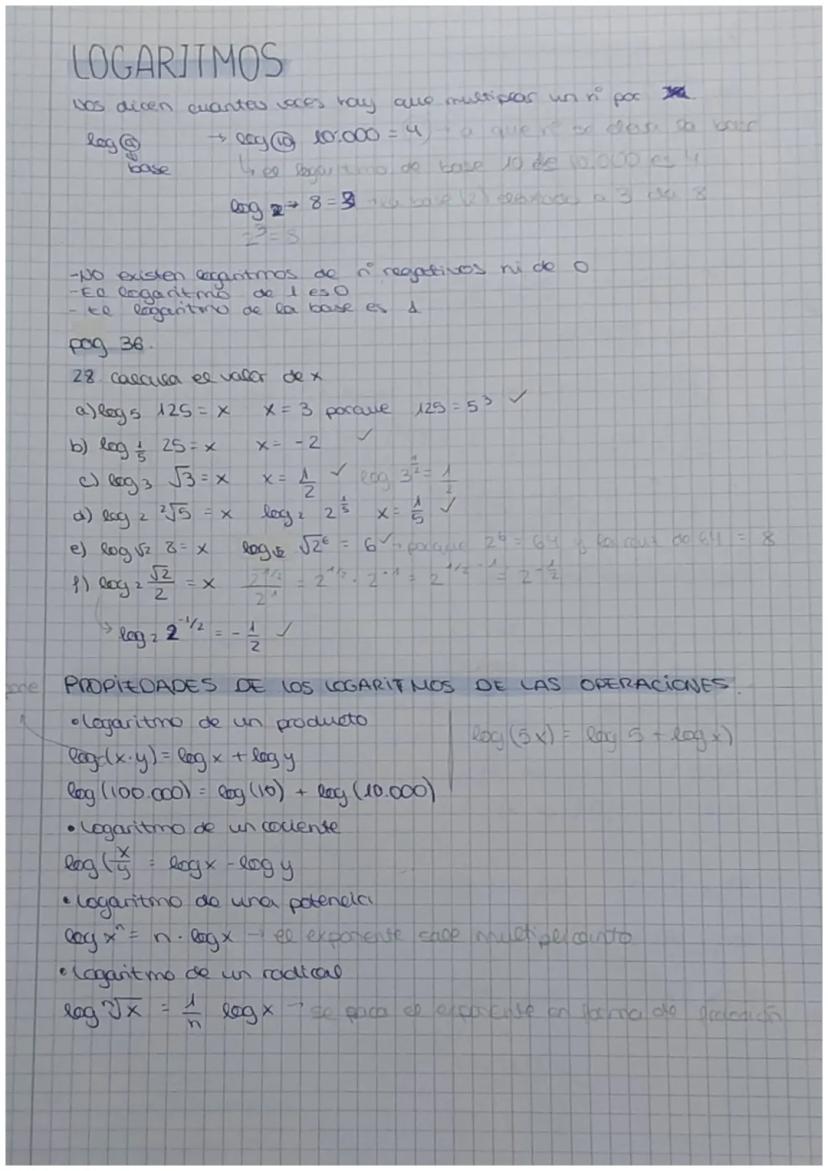 LOGARITMOS
Nos dicen cuantas veces hay que multiplicar un nº por
log ⓐ → log ⑩ 10.000 = 4) a que nº se eleva la base
base ↳ el logaritmo de base 10 de 10.000 es 4
log 2 → 8 = 3 la base (2) elevada a 3 da 8
2³ = 8
-NO existen logaritmos de nº negativos ni de 0
-El logaritmo de 1 es 0
- El logaritmo de la base es 1
pag 36.
28 calcula el valor de x
a) log₅ 125 = x x = 3 porque 125 = 5³ ✓
b) log 1/5 25 = x x = -2 ✓
c) log₃ √3 = x x = 1/2 ✓ log 3^1/2 = 1/2
d) log₂ ²√5 = x log₂ 2^1/5 x = 1/5 ✓
e) log √2 8 = x log √2 √2⁶ = 6 ✓ → porque 2⁶ = 64 y la raiz de 64 = 8
f) log₂ √2/2 = x 2^1/2 / 2^1 = 2^1/2 · 2^-1 = 2^1/2 - 1 = 2^-1/2
↳ log₂ 2^-1/2 = -1/2 ✓
PROPIEDADES DE LOS LOGARITMOS DE LAS OPERACIONES.
• Logaritmo de un producto
log (5x) = log 5 + log x)
log (x·y) = log x + log y
log (100.000) = log (10) + log (10.000)
• Logaritmo de un cociente
log (x/y = log x - log y
• Logaritmo de una potencia
log xⁿ = n · log x → el exponente sale multiplicando
• Logaritmo de un radical
log ⁿ√x = 1/n log x → se pasa el exponente en forma de